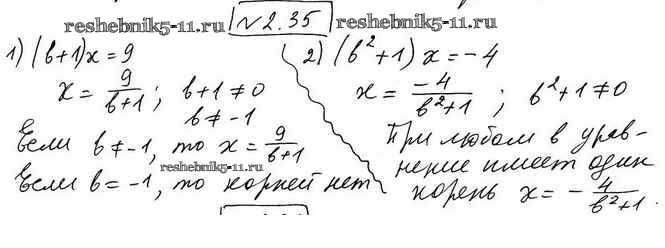 №2.35
reshebnik5-11.ru
reshebnik5-11.ru
1) (b+1)x=9
x = 9/(b+1); b+1≠0
b≠-1
Если b≠-1, то x = 9/(b+1)
reshebnik5-11.ru
Если b=-1, то корней нет
2) (b²+1)x=-4
x = -4/(b²+1); b²+1≠0
При любом b урав-
нение имеет один
корень x = -4/(b²+1).